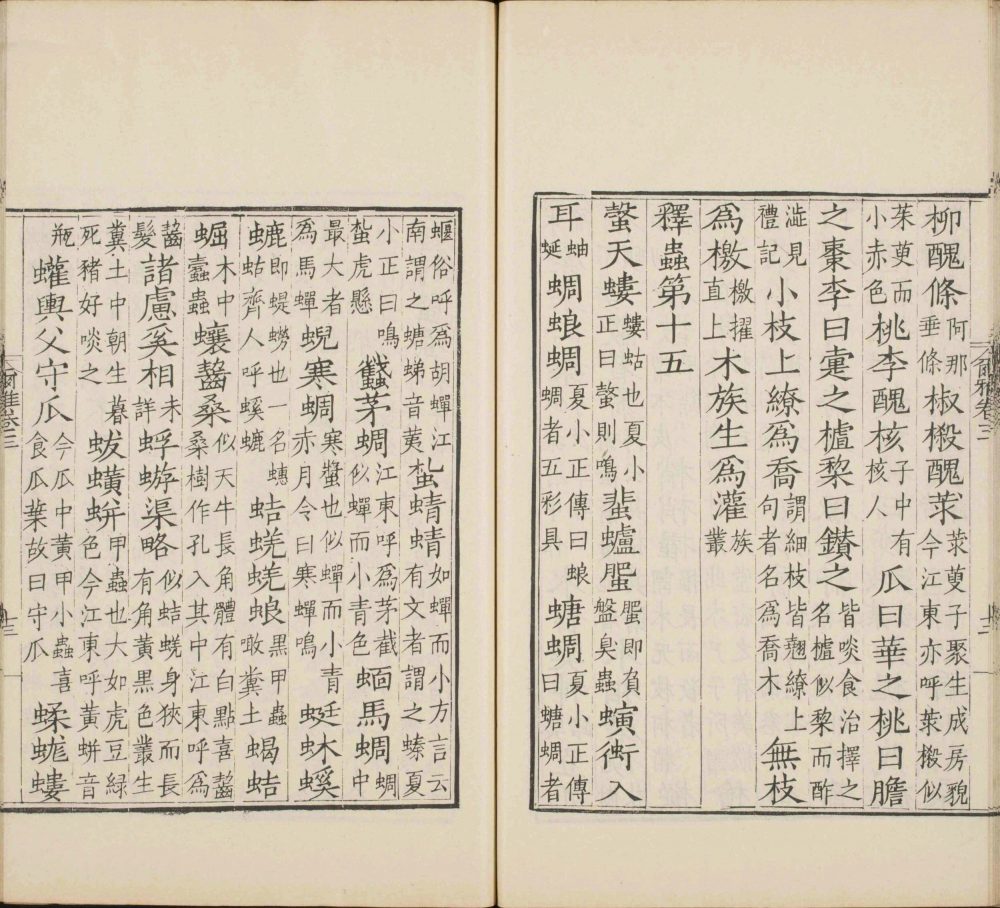 柳醜條阿那垂條椒樧醜莍莍萸子聚生成房貌今江東亦呼莍樧似
茱萸而小赤色桃李醜核子中有核人瓜曰華之桃曰膽
之棗李曰疐之樝棃曰鑽之皆啖食治擇之名樝似棃而酢
澁見禮記小枝上繚爲喬謂細枝皆翹繚上句者名爲喬木無枝
爲檄檄擢直上木族生爲灌族叢
釋蟲第十五
螜天螻螻蛄也夏小正曰螜則鳴蜚蠦蜰蜰即負盤臭蟲螾衝入
耳蚰蜒蜩蜋蜩夏小正傳曰蜋蜩者五彩具螗蜩夏小正傳曰螗蜩者
蝘俗呼爲胡蟬江南謂之螗蛦音荑蚻蜻蜻如蟬而小方言云有文者謂之螓夏
小正曰鳴蚻虎懸蠽茅蜩江東呼爲茅截似蟬而小青色蝒馬蜩蜩中
最大者爲馬蟬蜺寒蜩寒螿也似蟬而小青赤月令曰寒蟬鳴蜓蚞螇
螰即蝭蟧也一名蟪蛄齊人呼螇螰蛣蜣蜣蜋黑甲蟲噉糞土蝎蛣
𧌑木中蠹蟲蠰齧桑似天牛長角體有白點喜齧桑樹作孔入其中江東呼爲
齧髮諸慮奚相未詳蜉蝣渠略似蛣蜣身狹而長有角黃黑色叢生
糞土中朝生暮死豬好啖之蛂蟥蛢甲蟲也大如虎豆綠色今江東呼黃蛢音
瓶蠸輿父守瓜今瓜中黃甲小蟲喜食瓜葉故曰守瓜蝚蛖螻